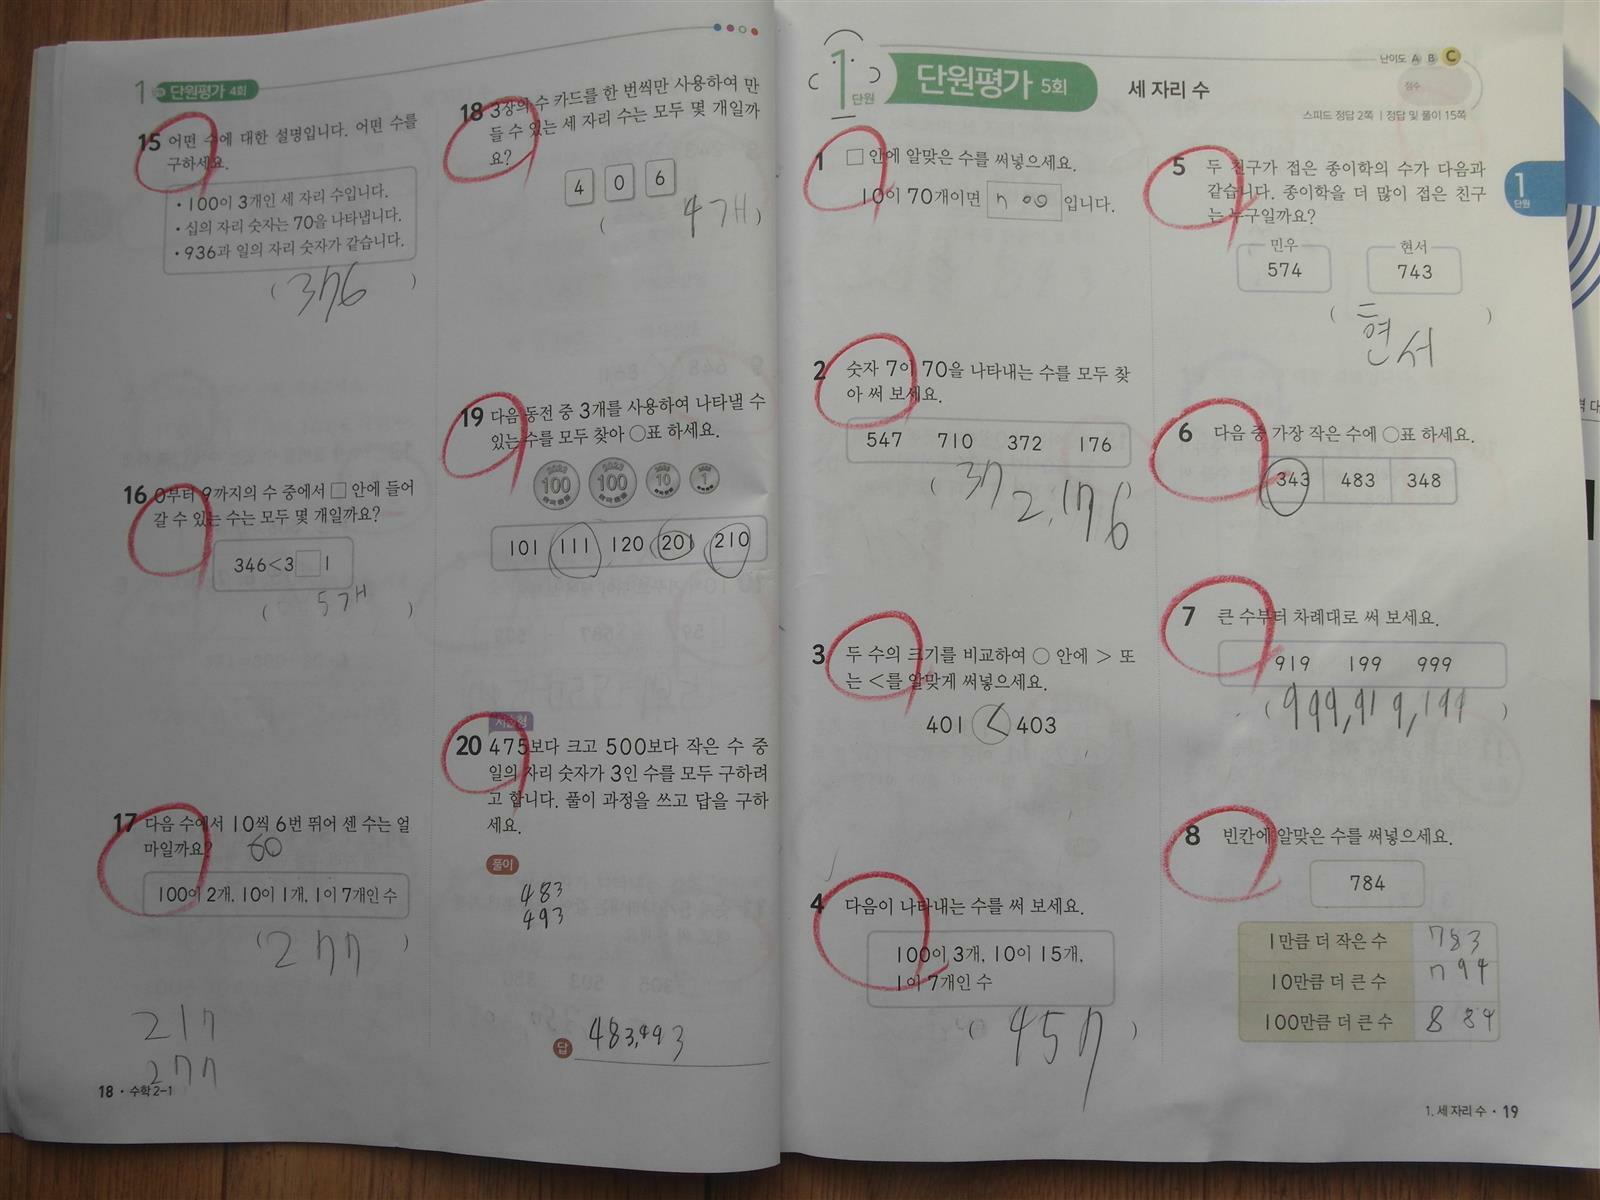 1 단원평가 4회
15 어떤 수에 대한 설명입니다. 어떤 수를
구하세요.
· 100이 3개인 세 자리 수입니다.
· 십의 자리 숫자는 70을 나타냅니다.
· 936과 일의 자리 숫자가 같습니다.
( 376 )
16 0부터 9까지의 수 중에서 □ 안에 들어
갈 수 있는 수는 모두 몇 개일까요?
346<3□1
( 5개 )
17 다음 수에서 10씩 6번 뛰어 센 수는 얼
마일까요? 60
100이 2개, 10이 1개, 1이 7개인 수
( 277 )
217
277
18 · 수학 2-1
18 3장의 수 카드를 한 번씩만 사용하여 만
들 수 있는 세 자리 수는 모두 몇 개일까
요?
4 0 6
( 4개 )
19 다음 동전 중 3개를 사용하여 나타낼 수
있는 수를 모두 찾아 ○표 하세요.
100 100 10 1
101 111 120 201 210
서술형
20 475보다 크고 500보다 작은 수 중
일의 자리 숫자가 3인 수를 모두 구하려
고 합니다. 풀이 과정을 쓰고 답을 구하
세요.
풀이
483
493
답 483,493
1 단원
단원평가 5회
세 자리 수
난이도 A B C
점수
스피드 정답 2쪽 | 정답 및 풀이 15쪽
1 □ 안에 알맞은 수를 써넣으세요.
10이 70개이면 700 입니다.
2 숫자 7이 70을 나타내는 수를 모두 찾
아 써 보세요.
547 710 372 176
( 372,176 )
3 두 수의 크기를 비교하여 ○ 안에 > 또
는 <를 알맞게 써넣으세요.
401 < 403
4 다음이 나타내는 수를 써 보세요.
100이 3개, 10이 15개,
1이 7개인 수
( 457 )
5 두 친구가 접은 종이학의 수가 다음과
같습니다. 종이학을 더 많이 접은 친구
는 누구일까요?
민우 현서
574 743
( 현서 )
6 다음 중 가장 작은 수에 ○표 하세요.
343 483 348
7 큰 수부터 차례대로 써 보세요.
919 199 999
( 999,919,199 )
8 빈칸에 알맞은 수를 써넣으세요.
784
1만큼 더 작은 수 783
10만큼 더 큰 수 794
100만큼 더 큰 수 884
1
단원
1. 세 자리 수 · 19